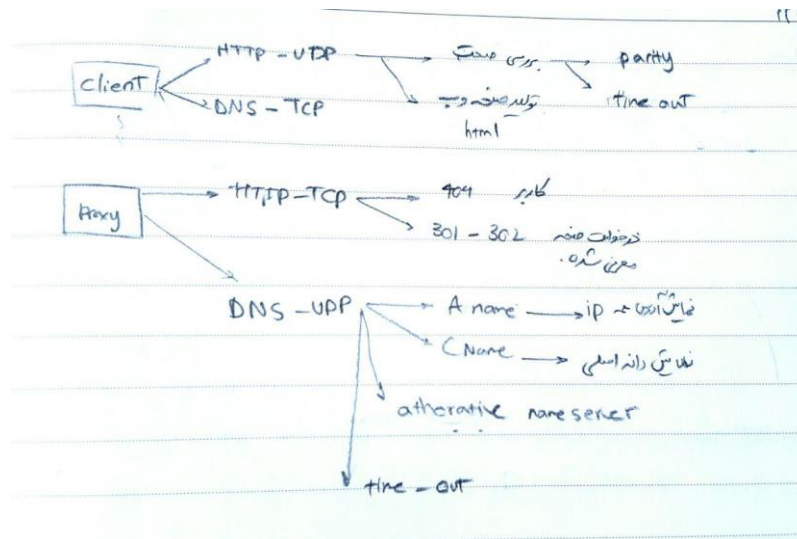 HTTP-UDP بررسی صحت parity
client
DNS-TCP تولید صفحه وب time out
html
Proxy HTTP-TCP 404 کاربر
301-302 درخواست صفحه
معرفی شده.
DNS-UDP A name ip نمایش آدرس
CName نمایش دامنه اصلی
atherative name server
time-out